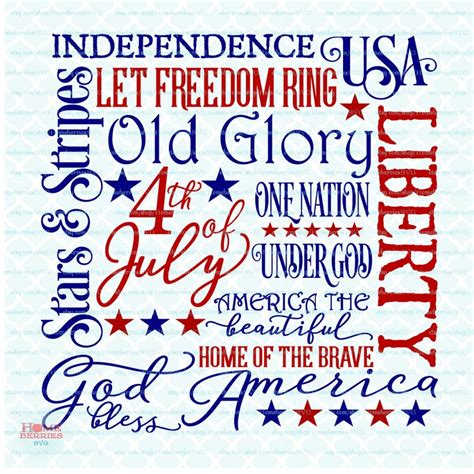 INDEPENDENCE
USA
LET FREEDOM RING
Stars & Stripes
Old Glory
LIBERTY
4th
of
July
ONE NATION
UNDER GOD
AMERICA THE
beautiful
HOME OF THE BRAVE
God bless America
HOME
BERRIES
SVG